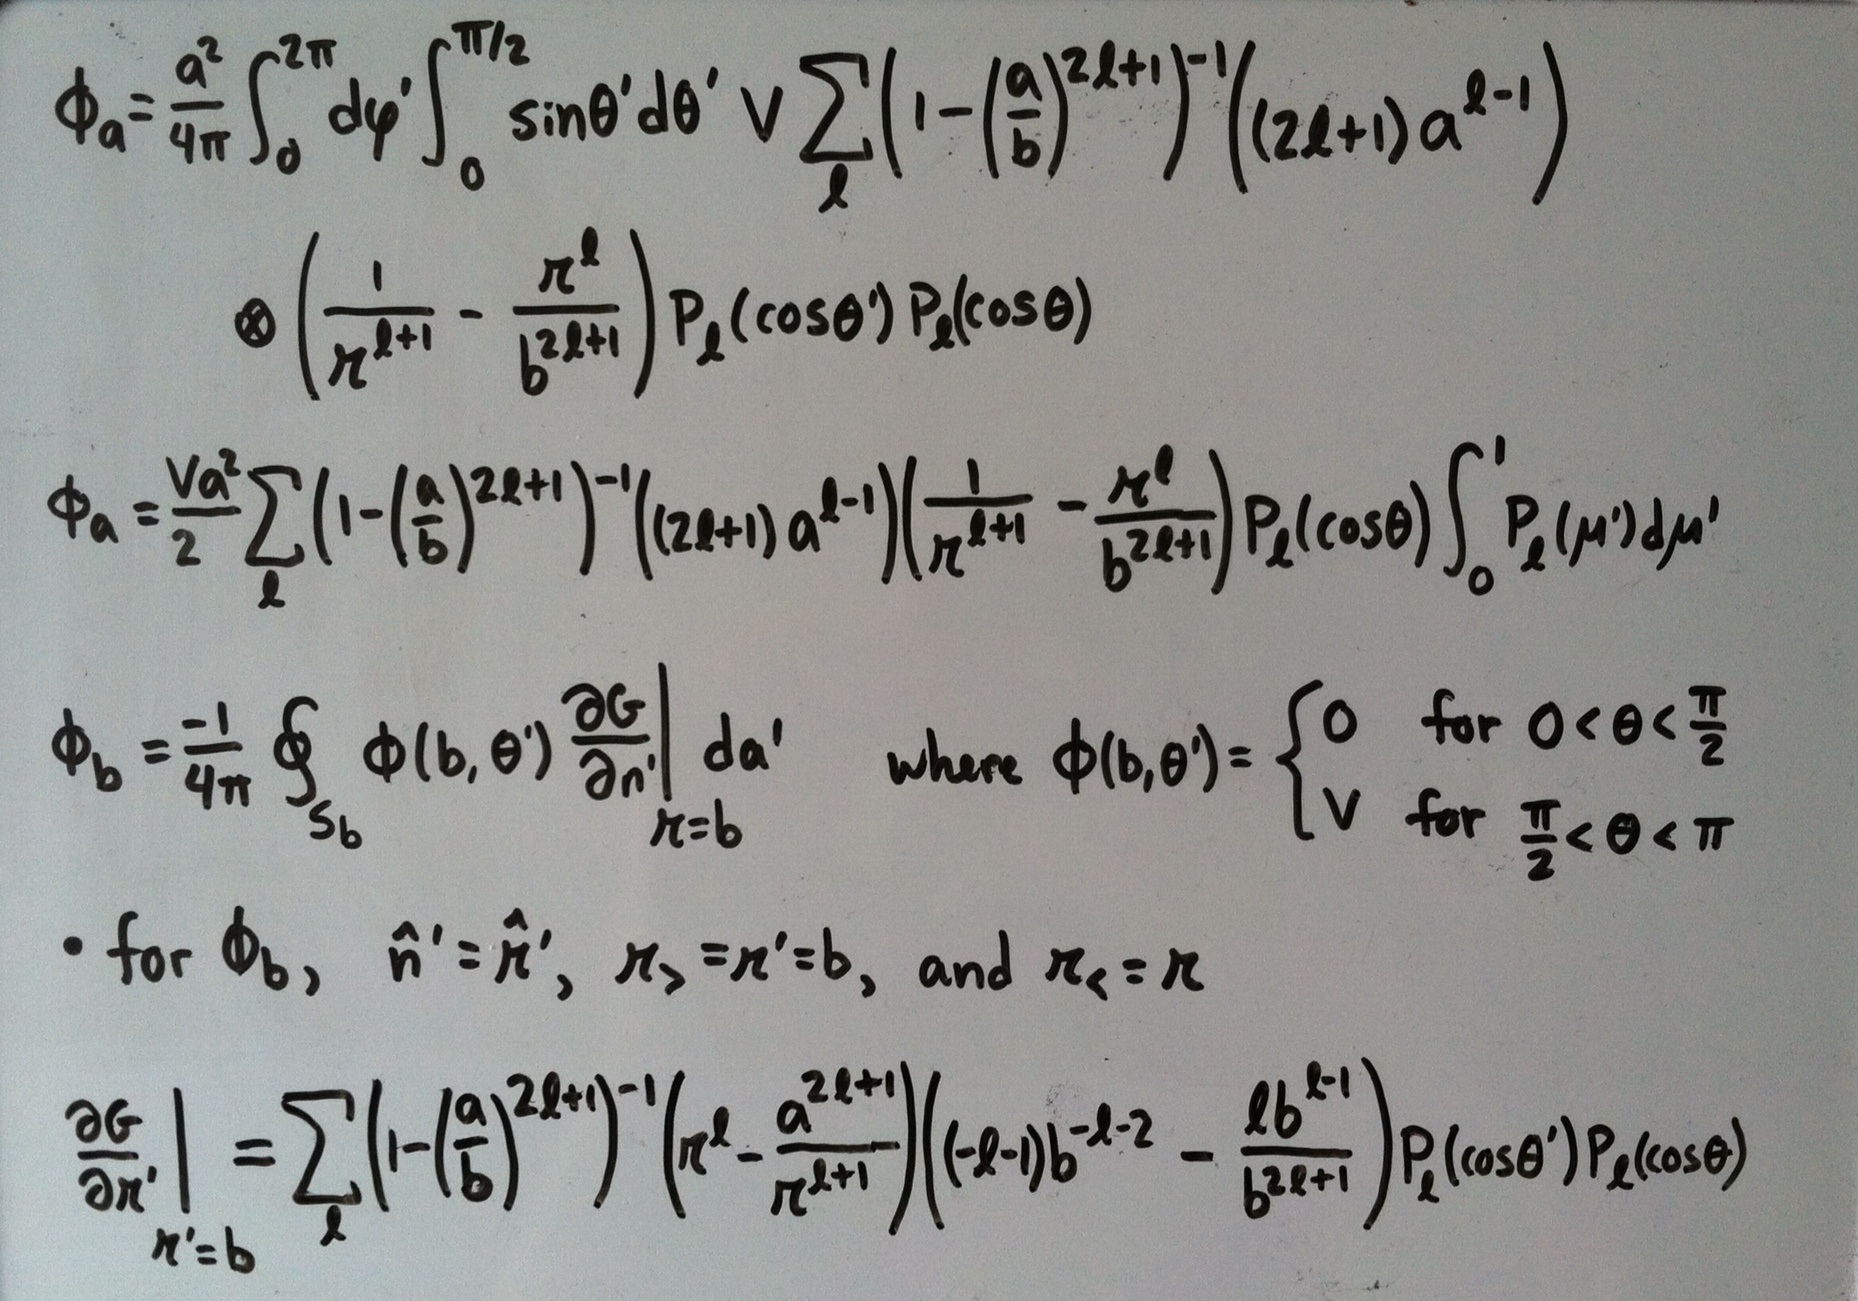 ϕ_a = a²/4π ∫_0^{2π} dφ' ∫_0^{π/2} sinθ'dθ' V ∑_ℓ (1-(a/b)^{2ℓ+1})^{-1} ((2ℓ+1) a^{ℓ-1})
⊗ (1/r^{ℓ+1} - r^ℓ/b^{2ℓ+1}) P_ℓ(cosθ') P_ℓ(cosθ)
ϕ_a = Va²/2 ∑_ℓ (1-(a/b)^{2ℓ+1})^{-1} ((2ℓ+1) a^{ℓ-1}) (1/r^{ℓ+1} - r^ℓ/b^{2ℓ+1}) P_ℓ(cosθ) ∫_0^1 P_ℓ(μ')dμ'
ϕ_b = -1/4π ∮_{S_b} ϕ(b,θ') ∂G/∂n' |_{r=b} da' where ϕ(b,θ') = { 0 for 0<θ<π/2
V for π/2<θ<π
• for ϕ_b, n̂'=r̂', r_>=r'=b, and r_<=r
∂G/∂r' |_{r'=b} = ∑_ℓ (1-(a/b)^{2ℓ+1})^{-1} (r^ℓ - a^{2ℓ+1}/r^{ℓ+1}) ((-ℓ-1)b^{-ℓ-2} - ℓb^{ℓ-1}/b^{2ℓ+1}) P_ℓ(cosθ') P_ℓ(cosθ)